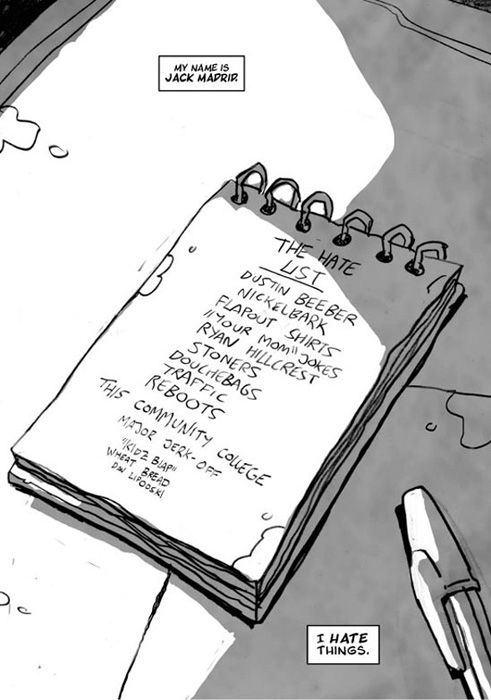 MY NAME IS
JACK MADRID.
THE HATE
LIST
DUSTIN BEEBER
NICKELBARK
FLAPOUT SHIRTS
"YOUR MOM" JOKES
RYAN HILLCREST
STONERS
DOUCHEBAGS
TRAFFIC
REBOOTS
THIS COMMUNITY COLLEGE
MAJOR JERK-OFF
"KIDZ BLAP"
WHEAT BREAD
DW LIPODSKI
I HATE
THINGS.